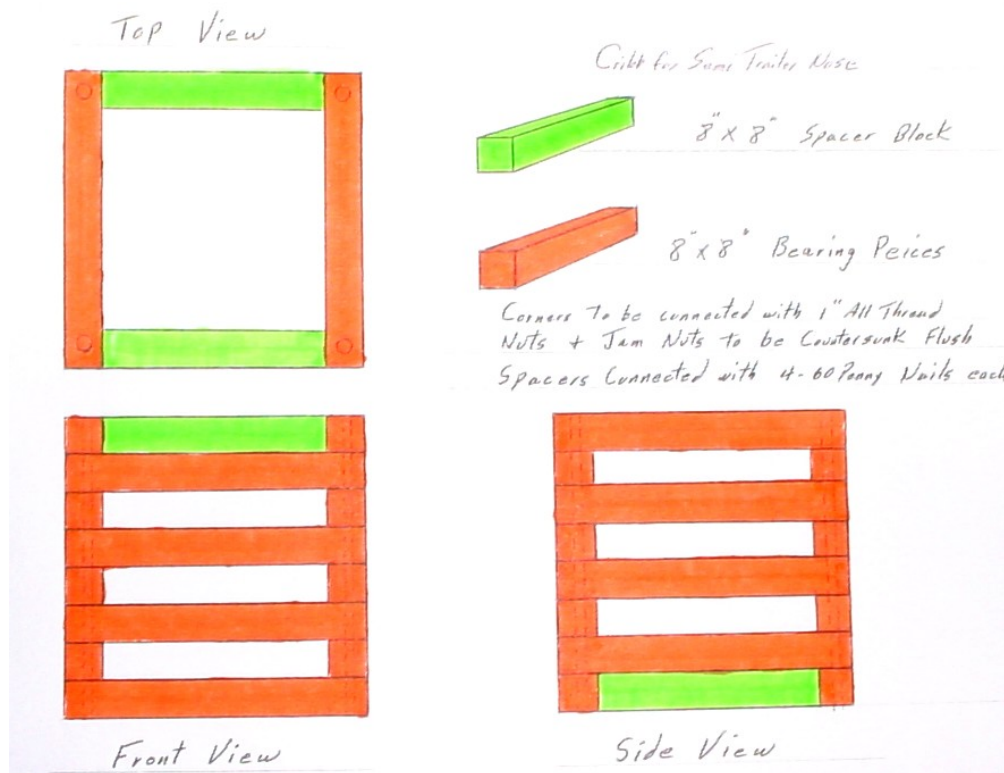 Top View
Cribb for Semi Trailer Nose
8" x 8" Spacer Block
8" x 8" Bearing Peices
Corners To be connected with 1" All Thread
Nuts + Jam Nuts to be Countersunk Flush
Spacers Connected with 4-60 Penny Nails each
Front View
Side View